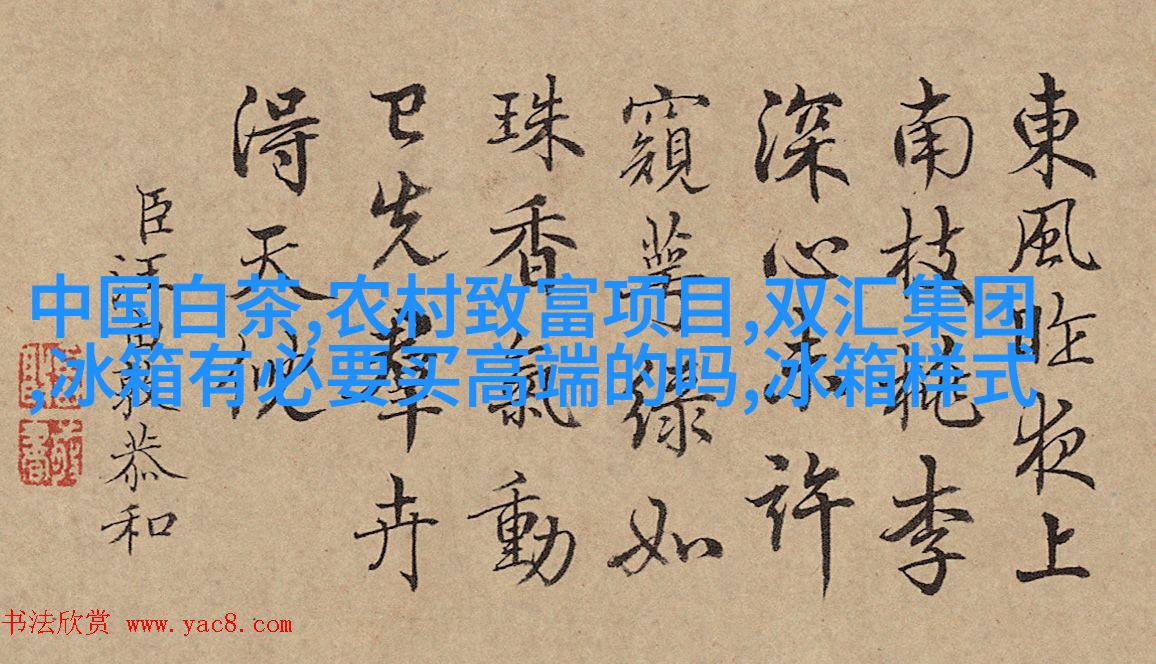 東風昨夜上
南枝桃李
深心未許
窺萼綠如
珠香氣動
已先羣卉
得天倪
臣汪由敦恭和
中国白茶,农村致富项目,双汇集团
,冰箱有必要买高端的吗,冰箱样式
书法欣赏 www.yac8.com